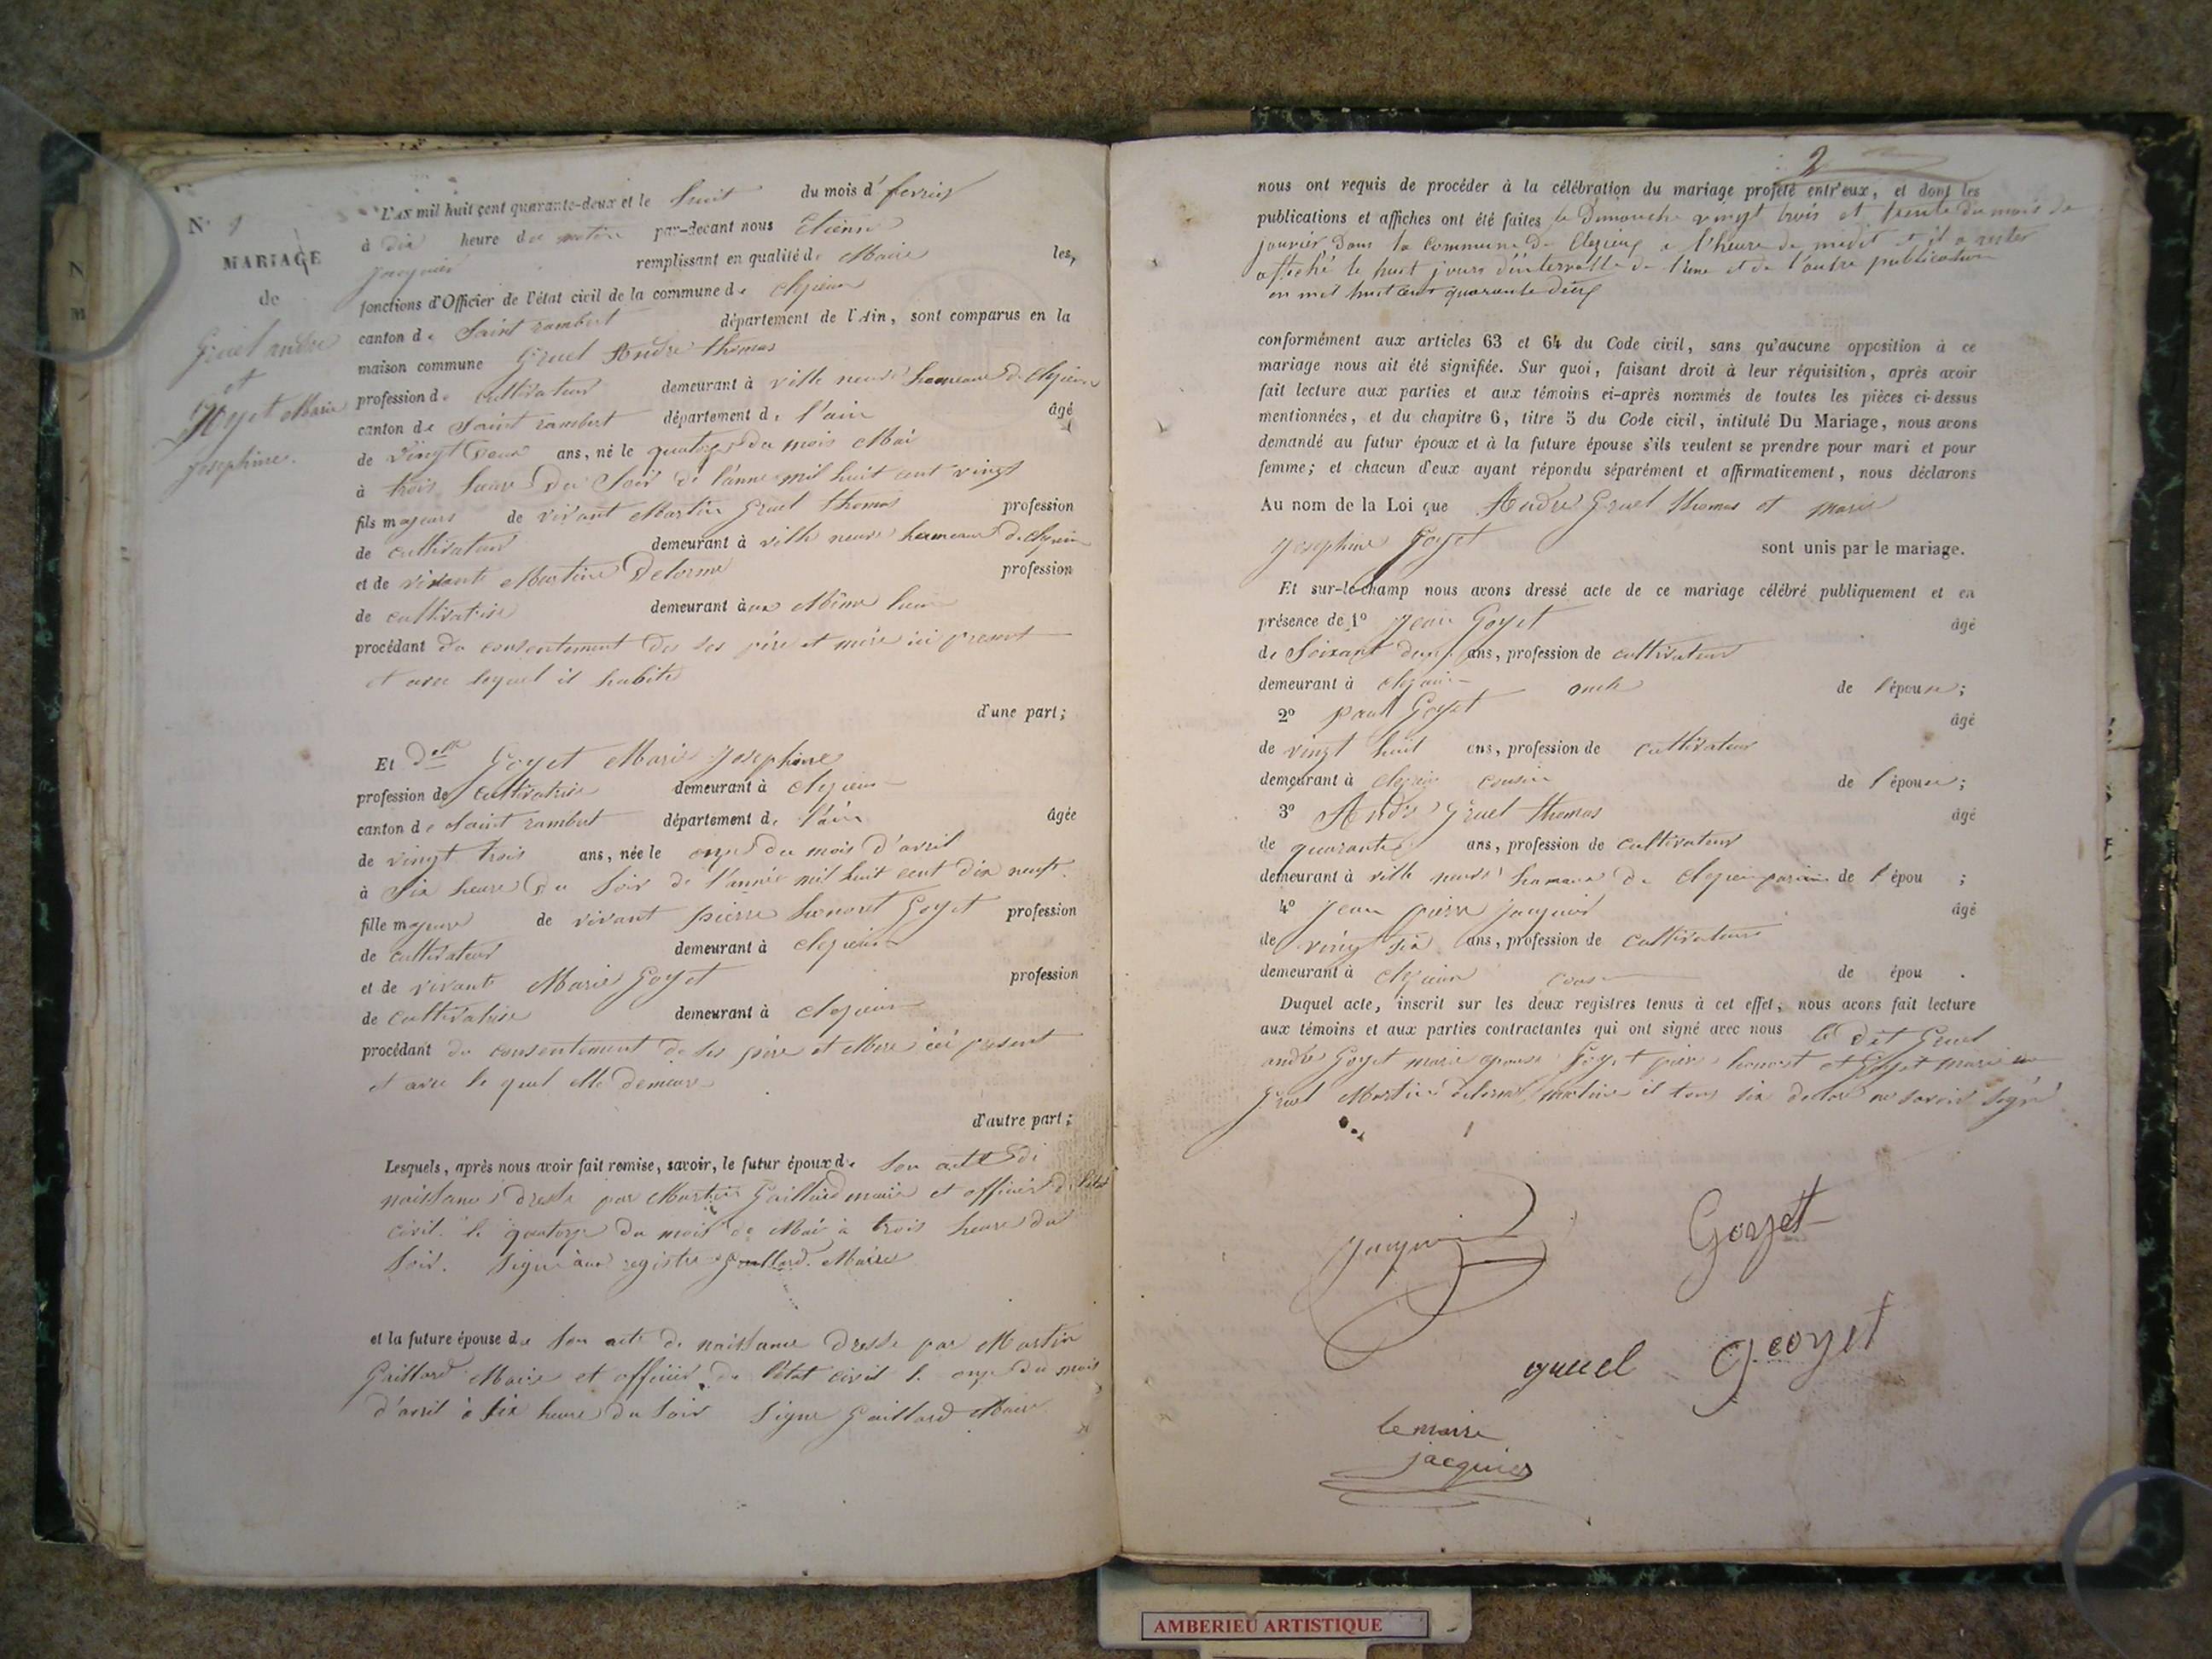 N° 1
MARIAGE
de
Gruel andré
et
Goyet Marie
Josephine.
L'AN mil huit cent quarante-deux et le huit du mois d' fevrier
à dix heure du matin par-devant nous Etienne
Jacquier remplissant en qualité de Maire les,
fonctions d'Officier de l'état civil de la commune de Clezieu
canton de Saint rambert département de l'Ain, sont comparus en la
maison commune Gruel André thomas
profession de cultivateur demeurant à ville neuve hameau de Clezieu
canton de Saint rambert département de l'ain âgé
de vingt deux ans, né le quatorze du mois Mai
à trois heure du Soir de l'anne mil huit cent vingt
fils majeur de vivant Martin Gruel thomas profession
de cultivateur demeurant à ville neuve hameau de Clezieu
et de vivante Martine Delorme profession
de cultivatrice demeurant à au Même lieu
procédant du consentement des ses père et mère ici present
et avec lequel il habite
d'une part;
Et Delle Goyet Marie Josephine
profession de cultivatrice demeurant à Clezieu
canton de Saint rambert département de l'ain âgée
de vingt trois ans, née le onze du mois d'avril
à Six heure du Soir de l'année mil huit cent dix neuf.
fille majeure de vivant pierre honoret Goyet profession
de cultivateur demeurant à Clezieu
et de vivante Marie Goyet profession
de cultivatrice demeurant à Clezieu
procédant du consentement de ses père et Mere ici present
et avec le quel elle demeure
d'autre part;
Lesquels, après nous avoir fait remise, savoir, le futur époux de Son acte de
naissance dressé par Martin Gaillard maire et officier de l'état
civil. le quatorze du mois de Mai à trois heure du
Soir. Signé au registre Gaillard Maire
et la future épouse de Son acte de naissance dressé par Martin
Gaillard Maire et officier de l'état civil le onze du mois
d'avril à six heure du Soir Signe Gaillard Maire
2
nous ont requis de procéder à la célébration du mariage projeté entr'eux, et dont les
publications et affiches ont été faites le Dimanche vingt trois et trente du mois de
janvier dans la Commune de Clezieu à l'heure de midit et il a rester
affiché le huit jours d'intervalle de l'une et de l'autre publication
en mil huit cent quarante deux
conformément aux articles 63 et 64 du Code civil, sans qu'aucune opposition à ce
mariage nous ait été signifiée. Sur quoi, faisant droit à leur réquisition, après avoir
fait lecture aux parties et aux témoins ci-après nommés de toutes les pièces ci-dessus
mentionnées, et du chapitre 6, titre 5 du Code civil, intitulé Du Mariage, nous avons
demandé au futur époux et à la future épouse s'ils veulent se prendre pour mari et pour
femme; et chacun d'eux ayant répondu séparément et affirmativement, nous déclarons
Au nom de la Loi que André Gruel thomas et marie
Josephine Goyet sont unis par le mariage.
Et sur-le-champ nous avons dressé acte de ce mariage célébré publiquement et en
présence de 1° Jean Goyet âgé
de Soixant deux ans, profession de cultivateur
demeurant à Clezieu oncle de l'épouse;
2° paul Goyet âgé
de vingt huit ans, profession de cultivateur
demeurant à Clezieu cousin de l'épouse;
3° André Gruel thomas âgé
de quarante ans, profession de cultivateur
demeurant à ville neuve hameau de Clezieu parain de l'épou ;
4° Jean pierre Jacquier âgé
de vingt six ans, profession de cultivateur
demeurant à Clezieu de épou .
Duquel acte, inscrit sur les deux registres tenus à cet effet, nous avons fait lecture
aux témoins et aux parties contractantes qui ont signé avec nous le dit Gruel
andré Goyet marie epouse Goyet pierre honoret et Goyet marie
Gruel Martin delorme martine il tous six declare ne savoir signé
Jacquier Goyet
gruel Goyet
le maire
jacquier
AMBERIEU ARTISTIQUE